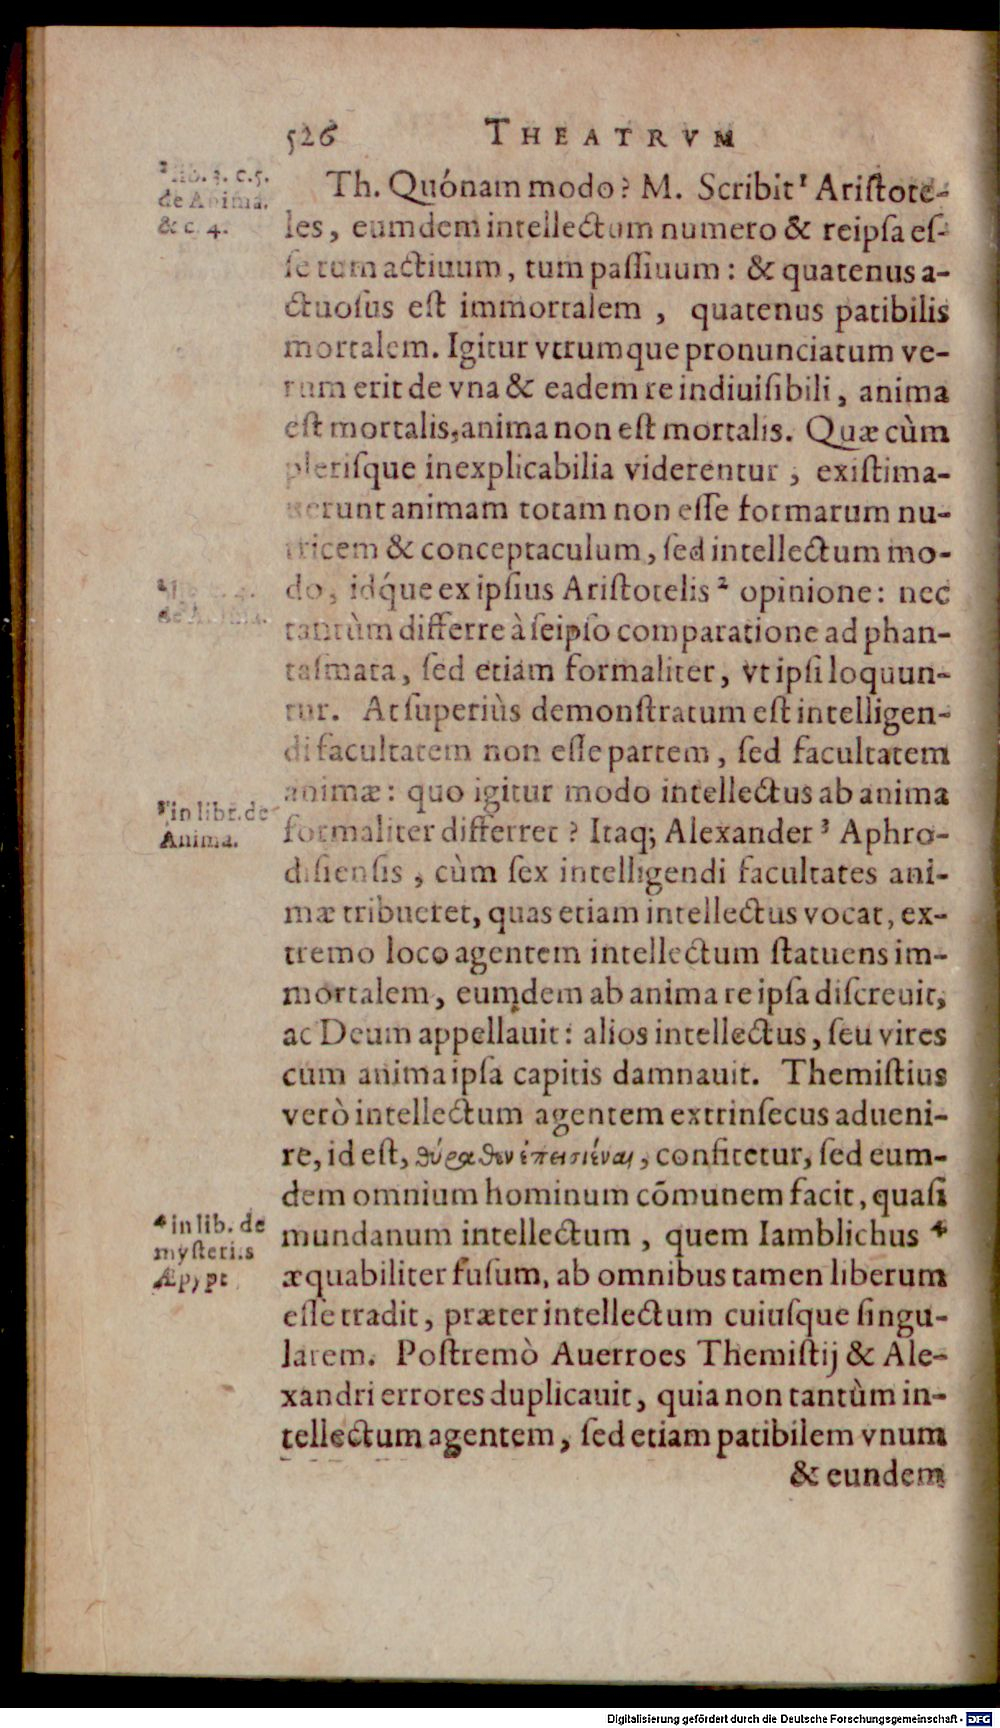 526 THEATRVM
¹ lib. 3. c.5.
de Anima.
& c. 4.
Th. Quónam modo? M. Scribit¹ Aristote-
les, eumdem intellectum numero & reipsa es-
se tum actiuum, tum passiuum: & quatenus a-
ctuosus est immortalem, quatenus patibilis
mortalem. Igitur vtrumque pronunciatum ve-
rum erit de vna & eadem re indiuisibili, anima
est mortalis, anima non est mortalis. Quæ cùm
plerisque inexplicabilia viderentur, existima-
uerunt animam totam non esse formarum nu-
tricem & conceptaculum, sed intellectum mo-
do, idq́ue ex ipsius Aristotelis ² opinione: nec
tantùm differre à seipso comparatione ad phan-
tasmata, sed etiam formaliter, vt ipsi loquun-
tur. At superiùs demonstratum est intelligen-
di facultatem non esse partem, sed facultatem
animæ: quo igitur modo intellectus ab anima
formaliter differret? Itaq; Alexander ³ Aphro-
disiensis, cùm sex intelligendi facultates ani-
mæ tribueret, quas etiam intellectus vocat, ex-
tremo loco agentem intellectum statuens im-
mortalem, eumdem ab anima re ipsa discreuit,
ac Deum appellauit: alios intellectus, seu vires
cum anima ipsa capitis damnauit. Themistius
verò intellectum agentem extrinsecus adueni-
re, id est, θύραθεν ἐπεισιέναι, confitetur, sed eum-
dem omnium hominum cõmunem facit, quasi
mundanum intellectum, quem Iamblichus ⁴
æquabiliter fusum, ab omnibus tamen liberum
esse tradit, præter intellectum cuiusque singu-
larem. Postremò Auerroes Themistij & Ale-
xandri errores duplicauit, quia non tantùm in-
tellectum agentem, sed etiam patibilem vnum
& eundem
de Anima.
³ in libr. de
Anima.
⁴ in lib. de
mysteriis
Ægypt
Digitalisierung gefördert durch die Deutsche Forschungsgemeinschaft - DFG